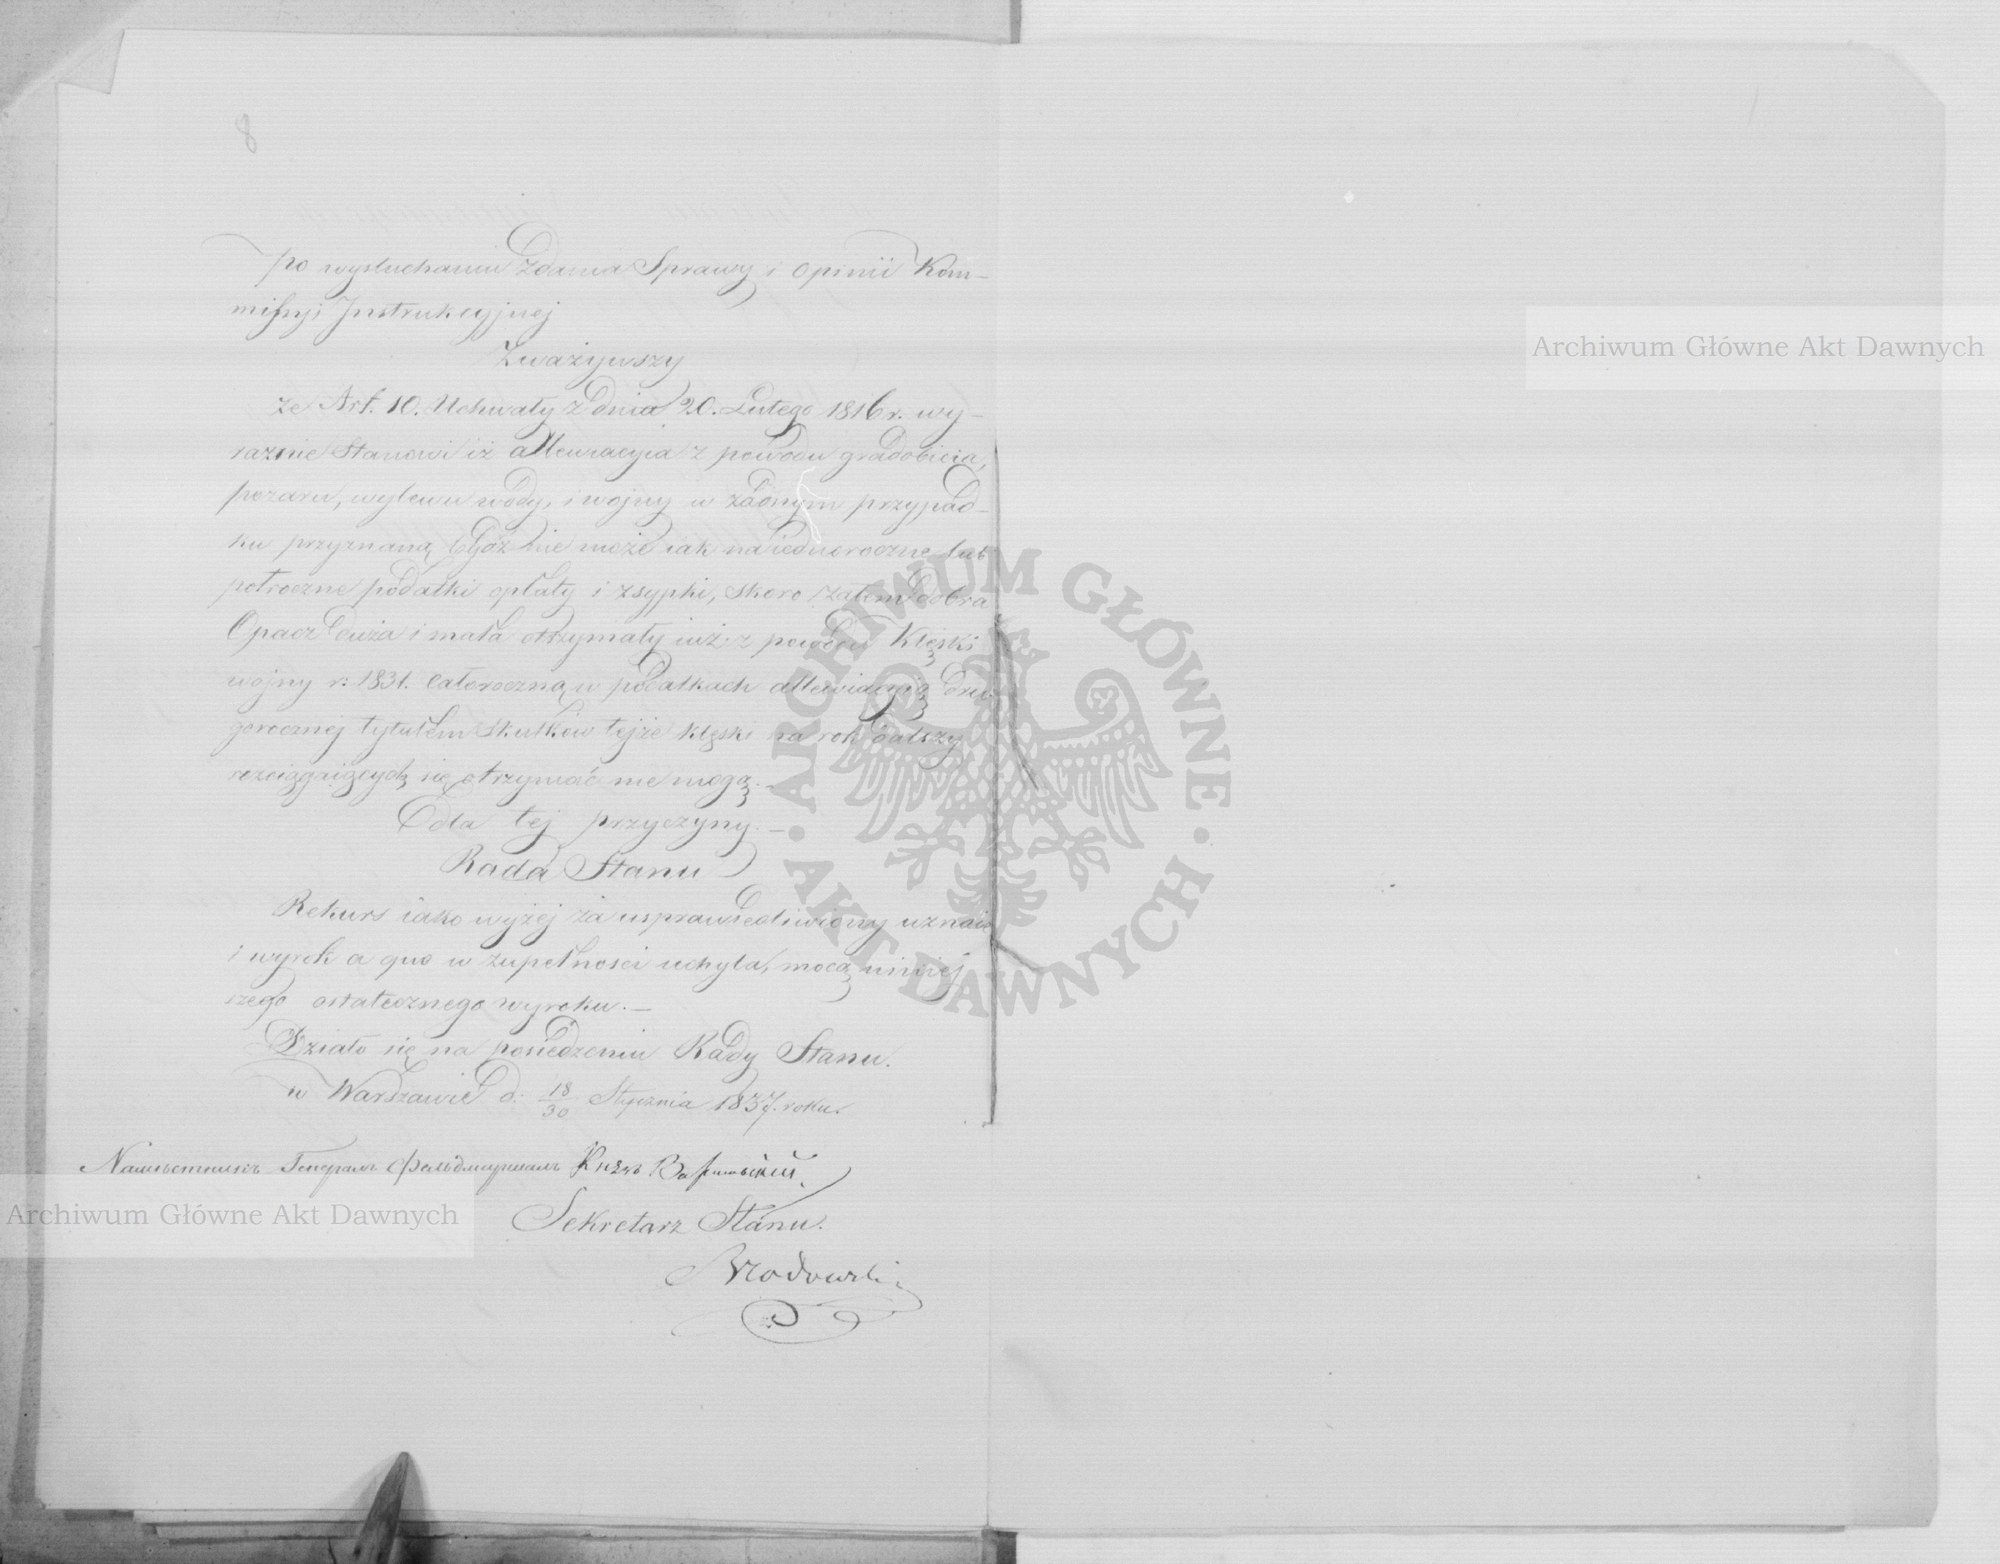 8
po wysłuchaniu Zdania Sprawy i Opinii Kom-
missyi Instrukcyjnej
Zważywszy
że Art. 10. Uchwały z dnia 20. Lutego 1816 r. wy-
raźnie Stanowi iż allewiacyia z powodu gradobicia,
pożaru, wylewu wody, i wojny w żadnym przypad-
ku przyznaną bydź nie może iak na iednoroczne lub
półroczne podatki opłaty i zsypki, skoro zatem dobra
Opacz duża i mała otrzymały iuż z powodu Klęski
wojny r: 1831. całoroczną w podatkach allewiacyią dru-
gorocznej tytułem Skutków tejże klęski na rok dalszy
rozciągaiących się otrzymać nie mogą.—
dla tej przyczyny.—
Rada Stanu
Rekurs iako wyżej za usprawiedliwiony uznaie
i wyrok a quo w zupełności uchyla, mocą niniej
szego ostatecznego wyroku.—
Działo się na posiedzeniu Rady Stanu.
w Warszawie d: 18/30 Stycznia 1837. roku.
Намѣстникъ Генералъ Фельдмаршалъ Князь Варшавскій
Sekretarz Stanu.
Brodowski
Archiwum Główne Akt Dawnych
Archiwum Główne Akt Dawnych
ARCHIWUM GŁÓWNE
AKT DAWNYCH